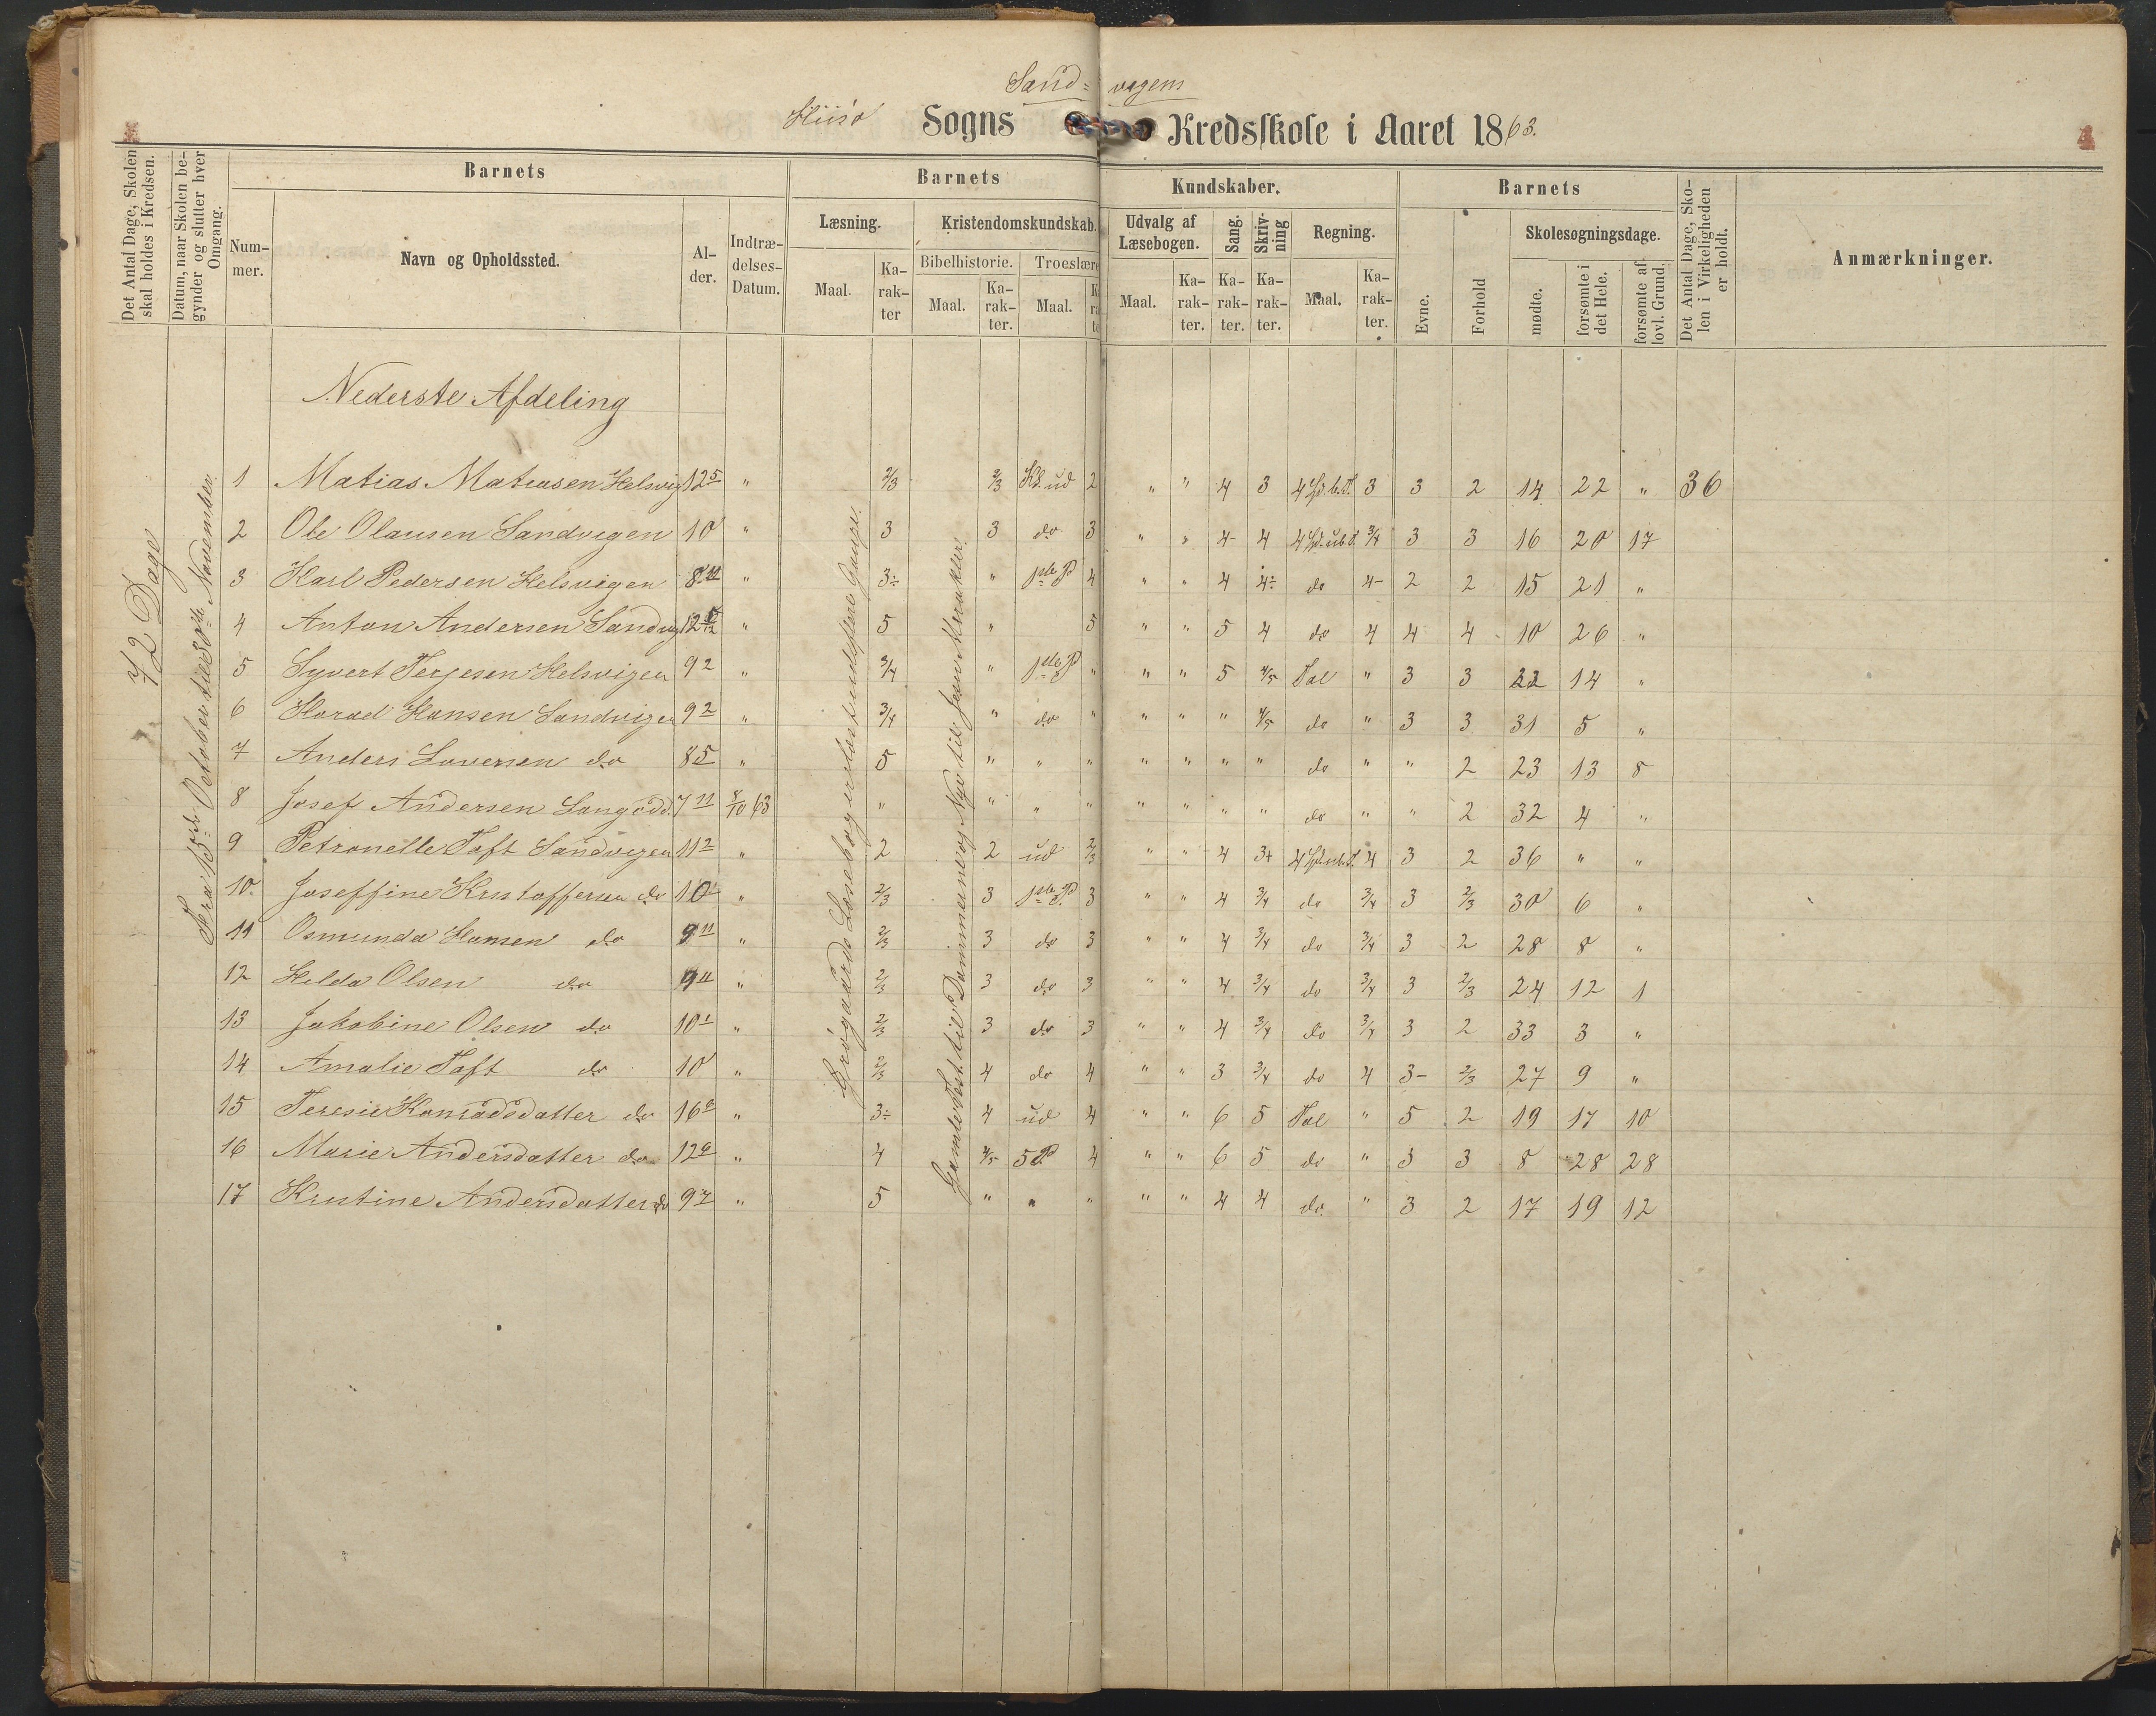 Sand= vigens
Hiisø Sogns Kredsskole i Aaret 1863.
Det Antal Dage, Skolen skal holdes i Kredsen.
Datum, naar Skolen begynder og slutter hver Omgang.
Barnets
Nummer.
Navn og Opholdssted.
Alder.
Indtrædelses-Datum.
Barnets Kundskaber.
Læsning.
Maal.
Karakter
Kristendomskundskab.
Bibelhistorie.
Maal.
Karakter.
Troeslære
Maal.
Udvalg af Læsebogen.
Maal.
Karakter.
Sang.
Karakter.
Skrivning
Karakter.
Regning.
Maal.
Karakter.
Barnets
Evne.
Forhold
Skolesøgningsdage.
mødte.
forsømte i det Hele.
forsømte af lovl. Grund.
Det Antal Dage, Skolen i Virkeligheden er holdt.
Anmærkninger.
72 Dage
Fra 15de October til 30te November
Nederste Afdeling
1 Matias Matiasen Helsvig 12 5 " 2/3 2/3 Kl. ud 2 " " 4 3 3 3 2 14 22 " 36
2 Ole Olausen Sandvigen 10 " 3 3 do 3 " " 4- 4 3/4 3 3 16 20 17
3 Karl Pedersen Helsvigen 8 11 " 3÷ " 1ste P 4 " " 4 4÷ do 4- 2 2 15 21 "
4 Anton Andersen Sandvig 12 " 5 " 5 " " 5 4 do 4 4 4 10 26 "
5 Syvert Terjesen Helsvigen 9 2 " 3/4 " 1ste P " " " 5 4/5 Tal " 3 3 22 14 "
6 Harald Hansen Sandvigen 9 2 " 3/4 " do " " " " 4/5 do " 3 3 31 5 "
7 Anders Laversen do 8 5 " 5 " " " " " " " do " " 2 23 13 8
8 Josef Andersen Langodd. 7 11 8/10 63 " " " " " " " " do " " 2 32 4 "
9 Petronelle Toft Sandvigen 11 2 " 2 2 ud 2/3 " " 4 3+ 4 3 2 36 " "
10 Joseffine Kristoffersen do 10 1 " 2/3 3 1ste P. 3 " " 4 3/4 do 3/4 3 2/3 30 6 "
11 Osmunda Hansen do 9 11 " 2/3 3 do 3 " " 4 3/4 do 3/4 3 2 28 8 "
12 Helda Olsen do 9 11 " 2/3 3 do 3 " " 4 3/4 do 3/4 3 2/3 24 12 1
13 Jakobine Olsen do 10 1 " 2/3 3 do 3 " " 4 3/4 do 3/4 3 2 33 3 "
14 Amalie Toft do 10 " 2/3 4 do 4 " " 3 3/4 do 4 3- 2/3 27 9 "
15 Teresie Konradsdatter do 16 " 3÷ 4 ud 4 " " 6 5 Tal " 5 2 19 17 10
16 Marie Andersdatter do 12 " 4 4/5 5 P 4 " " 6 5 do " 3 3 8 28 28
17 Kristine Andersdatter do 9 7 " 5 " " " " " 4 4 do. " 3 2 17 19 12